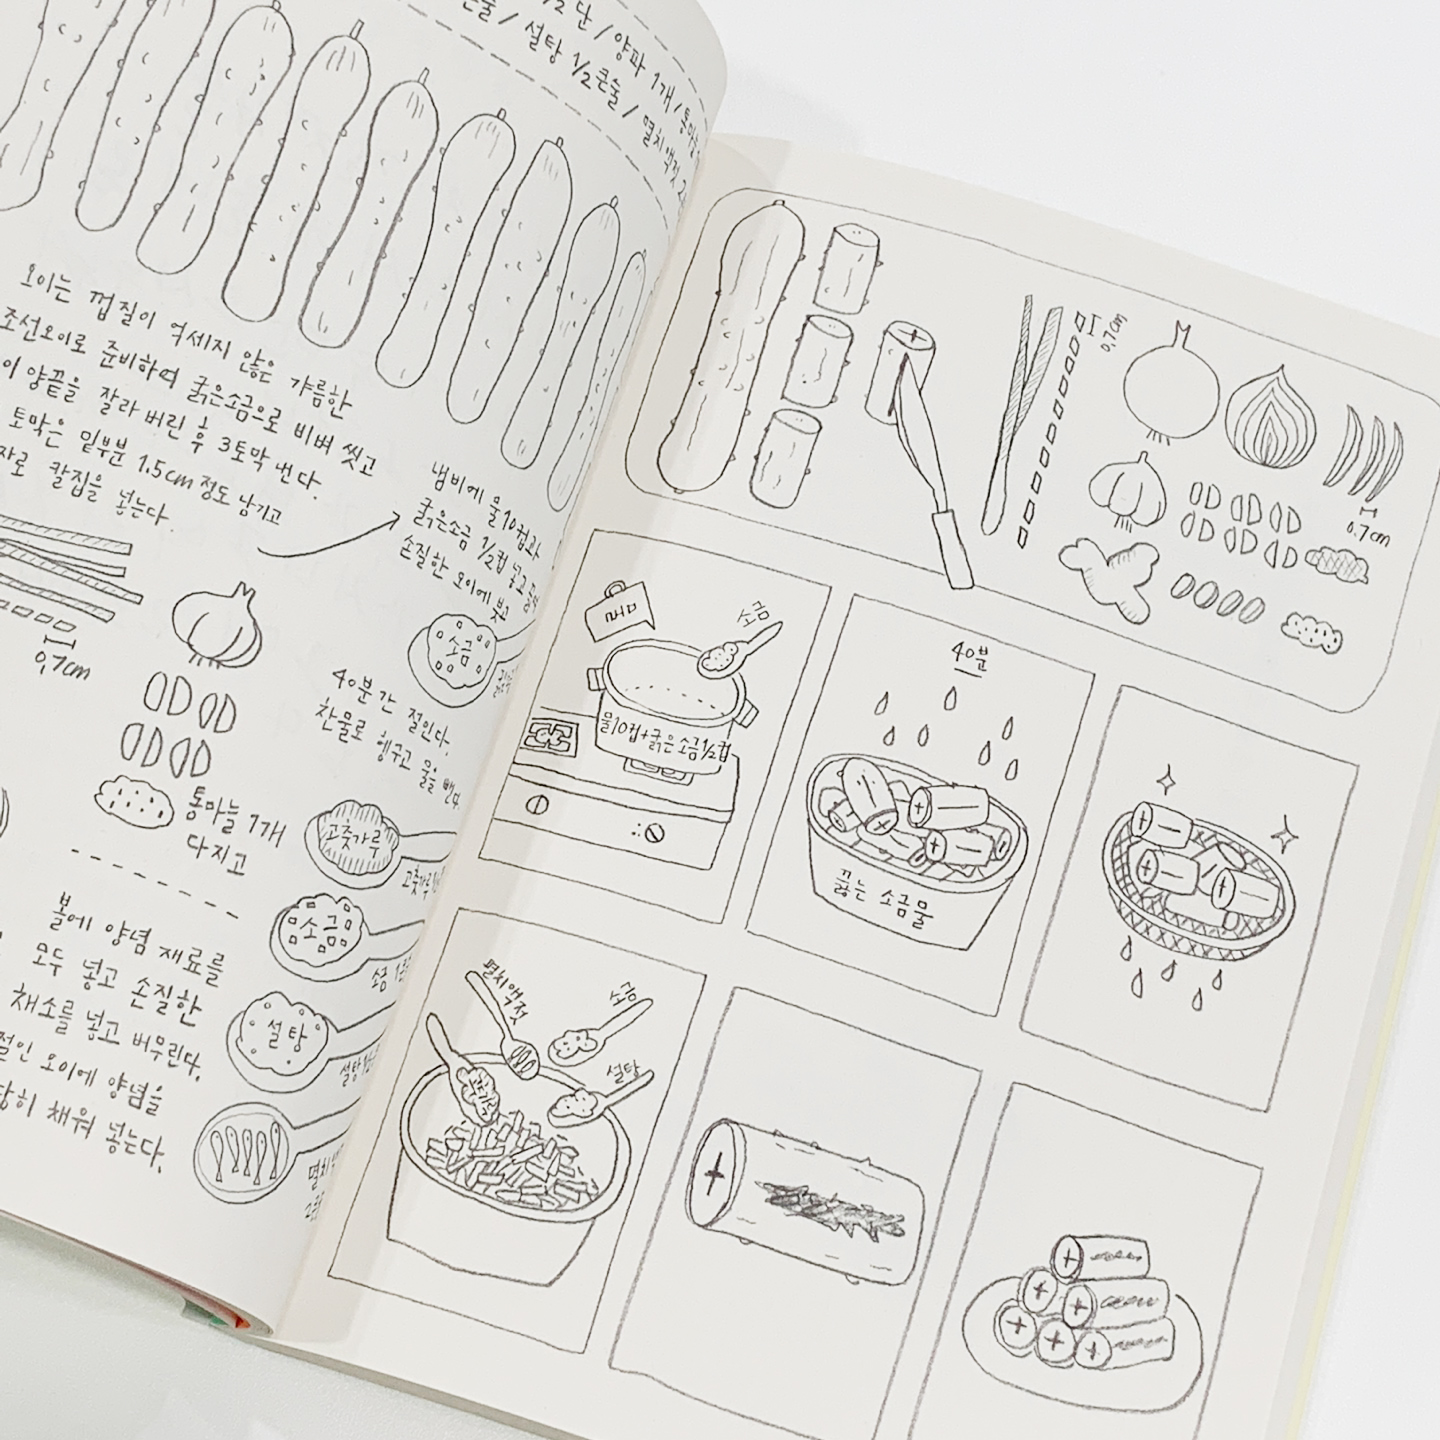 1/2단 / 양파 1개 / 통마늘
설탕 1/2큰술 / 멸치액젓
오이는 껍질이 억세지 않은 갸름한
조선오이로 준비하여 굵은소금으로 비벼 씻고
양끝을 잘라 버린 후 3토막 낸다.
토막은 밑부분 1.5cm 정도 남기고
칼집을 넣는다.
냄비에 물10컵과
굵은소금 1/2컵 넣고
손질한 오이에 붓고
소금
40분간 절인다.
찬물로 헹구고 물을 뺀다.
0.7cm
통마늘 1개
다지고
고춧가루
고춧가루
소금
소금
설탕
설탕
멸치
볼에 양념 재료를
모두 넣고 손질한
채소를 넣고 버무린다.
절인 오이에 양념을
채워 넣는다.
0.7cm
0.7cm
소금
물10컵+굵은소금1/2컵
40분
끓는 소금물
멸치액젓
소금
설탕